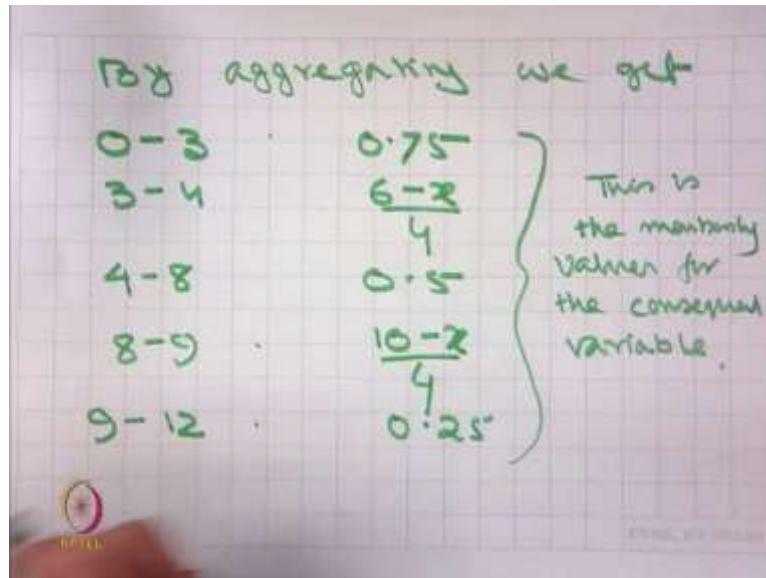 By aggregating we get
0 - 3 0.75
3 - 4 6 - x / 4
4 - 8 0.5
8 - 9 10 - x / 4
9 - 12 0.25
This is
the membership
values for
the consequent
variable.
NPTEL